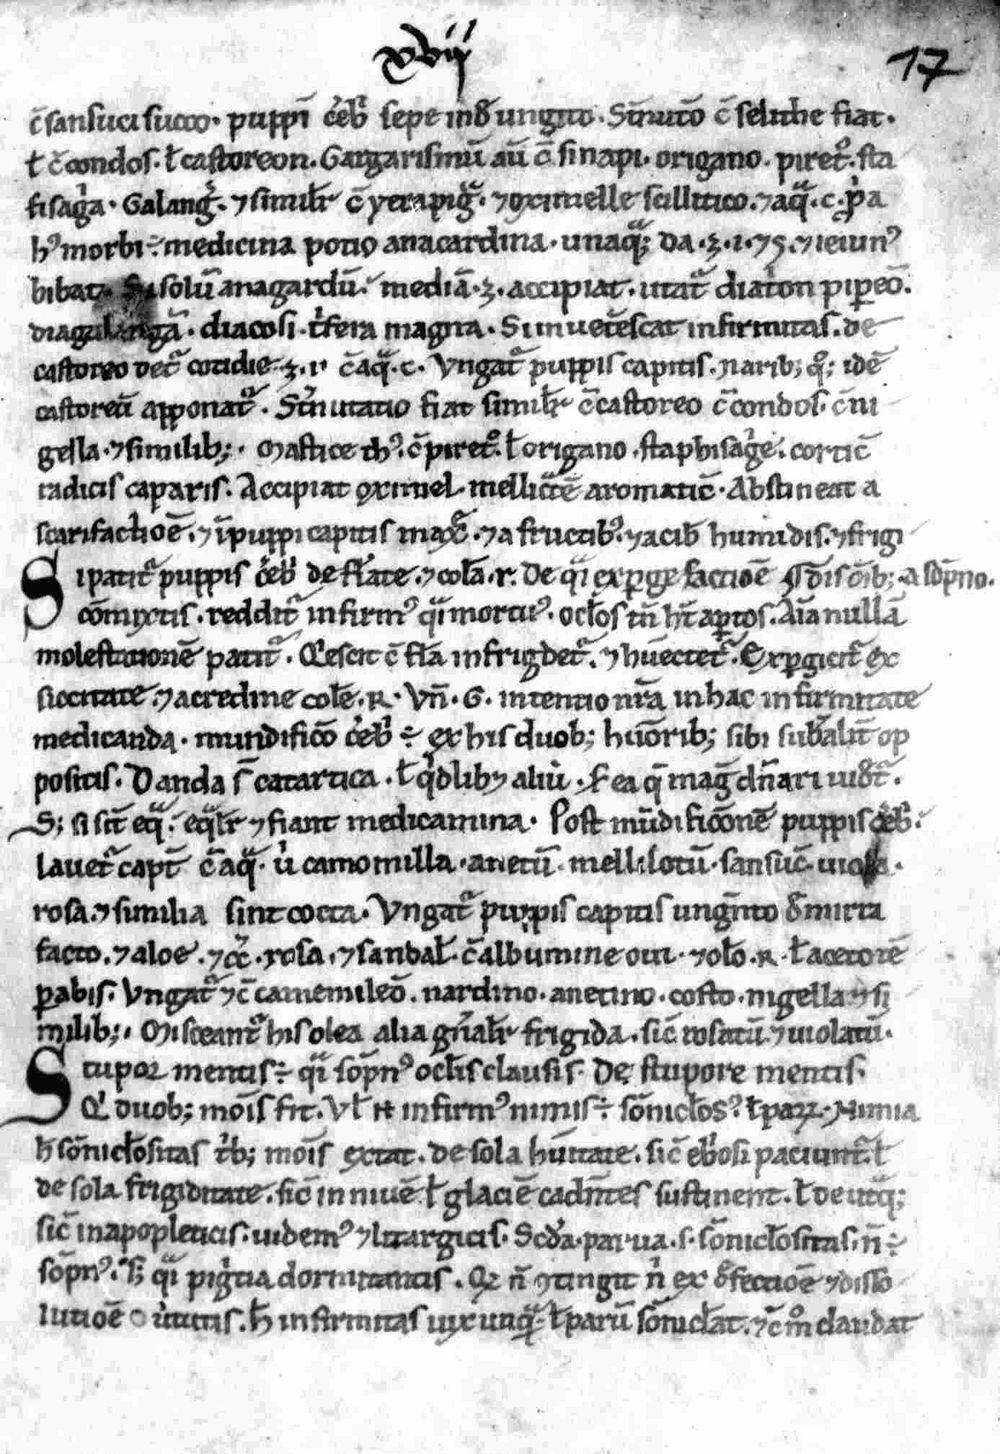 xviij
17
c̄ sansuci succo · puppī c̄eb̄ sepe inđ ungito · St̄nutō c̄ fiat ·
ł c̄ condos · ł castoreon · Gargarismū aū c̄ sinapi · origano · piret̊ · sta
fisag̓a · Galang̓ · ⁊ simil̄r c̄ yerapig̓ · ⁊ oximelle scillitico · ⁊ aq̄ · c · p̄a
h᷒ morbi ÷ medicina potio anacardina · unaq̄q; da · ʒ · ı · ⁊ ieiun᷒
bibat · solū anagardū · mediā · ʒ · accipiat · utat᷑ diat̓on pip̄eō ·
diagalangā · diacosi · t̓fera magna · Si inuet̓escat infirmitas · de
castoreo det᷑ cotidie · ʒ · ı c̄ aq̄ · c · Vngat᷑ puppis capitis · narib; q̊; idē
castoreū apponat᷑ · St̄nutatio fiat simil̄r c̄ castoreo c̄ condos · c̄ ni
gella · ⁊ similib; · Mastice c̄ piret̊ · ł origano · staphisag̓e · corticē
radicis caparis · Accipiat oximel · aromatic̄ · Abstineat a
scarifactiōe · ⁊ ī puppi capitis max̄ · ⁊ a fructib᷒ · ⁊ a cib̄ humidis · ⁊ frigi
Si patit᷑ puppis c̄eb̄ de fl̄ate · ⁊ col̄a · r · De q̄i exp̄gefactiōe ¶ dis oīb; · a sōpno ·
cōmixtis · reddit᷑ infirm᷒ q̄i mortu᷒ · ocl̄os tn̄ ht̄ ap̄tos · Aīa nullā
molestationē patit᷑ · Q̓escit c̄ fl̄a infrigdet᷑ · ⁊ hūectet᷑ · Exp̄gicit᷑ ex
siccitate · ⁊ acredine col̄e · R · Vn̄ · G · intentio nr̄a in hac infirmitate
medicanda · mundificō c̄eb̄ ÷ ex his duob; hūorib; sibi op
positis · Danda s̄ catartica · ł q̓dlib; aliū · ea q̄ mag̓ dn̄ari uidet᷑ ·
S; si sit̄ eq̄ · eq̄l̄r ⁊ fiant medicamina · Post mūdificōnē puppis c̄eb̄ ·
lauet᷑ capt̄ c̄ aq̄ · ū camomilla · anetū · mellilotū · sansuc̄ · uiola ·
rosa · ⁊ similia sint cocta · Vngat᷑ puppis capitis ungn̄to đ mirta
facto · ⁊ aloe · ⁊ · rosa · ⁊ sandal̄ · c̄ albumine oui · ⁊ olō · R · ł
p̄abis · Vngat᷑ ⁊ c̄ camemileō · nardino · anetino · costo · nigella ⁊ si
milib; · Misceant᷑ his olea alia gn̄al̄r frigida · sic̄ rosatū · ⁊ uiolatū ·
Stupor mentis ÷ q̄i sōpn᷒ ocl̄is clausis · De stupore mentis ·
Q̓ duob; mōis fit · Vł infirm᷒ nimis ÷ sōnicl̄os᷒ · Nimia
h̄ sōnicl̄ositas t̓b; mōis extat · de sola hūitate · sic̄ eb̓osi paciunt᷑ ł
de sola frigiditate · sic̄ in niuē ł glaciē cadn̄tes sustinent · ł de ut̓q;
sic̄ in apopleticis · uidem᷒ ⁊ litargicis · Scđa · parua · s · sōnicl̄ositas · n̄ ÷
sōpn᷒ · S; q̄i pig̓tia dormitantis · Q; n̄ ꝯtingit n̓ ex đfectiōe ⁊ disso
lutiōe u̓tutis · H̄ infirmitas uix unq̄ · ł parū sōnicl̄at · ⁊ claudat